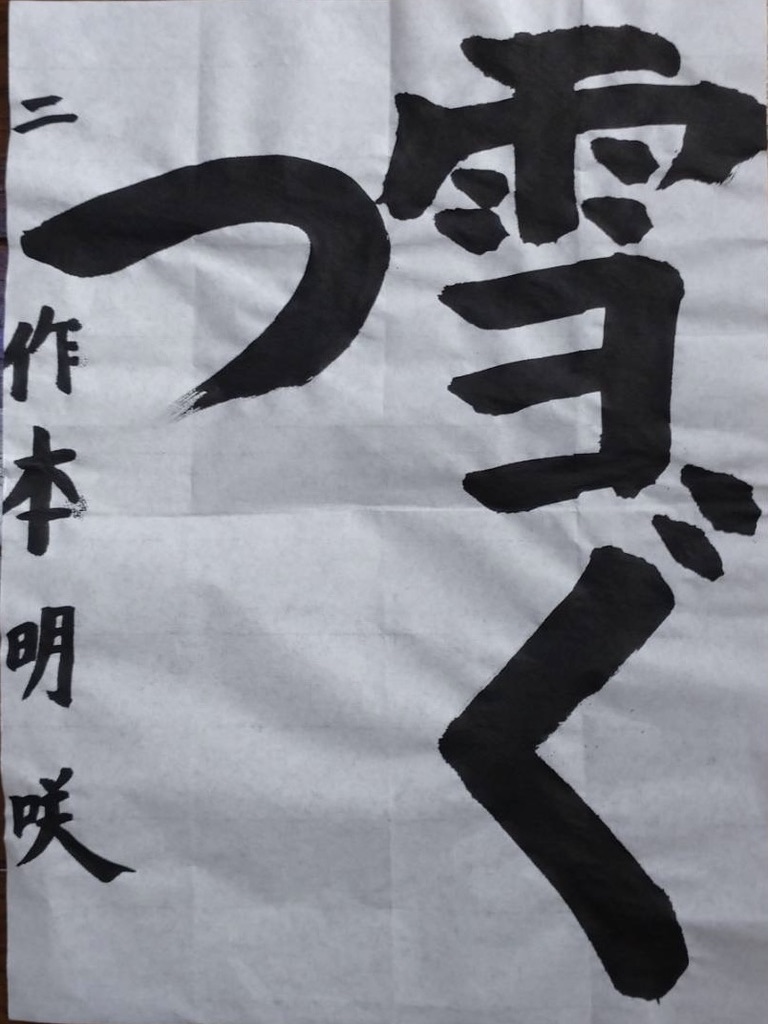 雪ぐ
つ
二 作本明咲